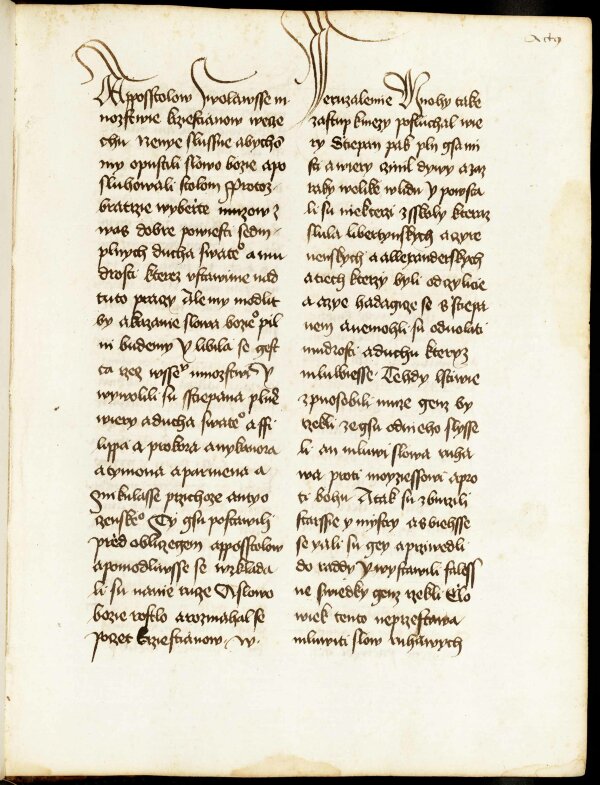 Apposstolow Swolawsse m
nozstwie krziestianow wece
chu Nenye slussne abycho
my opustili slowo bozie apo
sluhowali stolom Protoz
bratrzie wyberte muzow z
was dobre powiesti sedm
plnych ducha swateo a mu
drosti kterez vstawime nad
tuto praczy Ale my modlit
by akazanie slowa bozieo pil
ni budemy Y libila se gest
ta rzecz wsseo mnozstwi Y
wywolili su sstiepana plneo
wiery aducha swateo a ffi
lippa a prokora anykanora
atymona aparmena a
mikulasse przichoze antyo
zenskeo Ty gsu postawili
przed obliczegem apposstolow
apomodliwsse se wzklada
li su nanie rucze A slowo
bozie rostlo arozmahal se
poczet krziestianow w
Jeruzalemie Mnohy take
zastup kniezy posluchal wie
ry Sstiepan pak pln gsa mi
sti awiery czinil dywy azaz
raky welike wlidu Y powsta
li su niekterzi zsskoly kteraz
slula libertynskych aczyre
nenskych aallexanderskych
atiech kterzy byli od czylicie
a azye hadagicze se s stiepa
nem anemohli su odolati
mudrosti aduchu kteryz
mluwiesse Tehdy lstiwie
zpuosobili muze genz by
rzekli ze gsu od nieho slysse
li an mluwi slowa ruha
wa proti moyziessowi apro
ti bohu Atak su zburzili
starssie y mystry asbiehsse
se yali su gey apriwedli
do raddy Y wystawili faless
ne swiedky genz rzekli Clo
wiek tento neprzestawa
mluwiti slow ruhawych